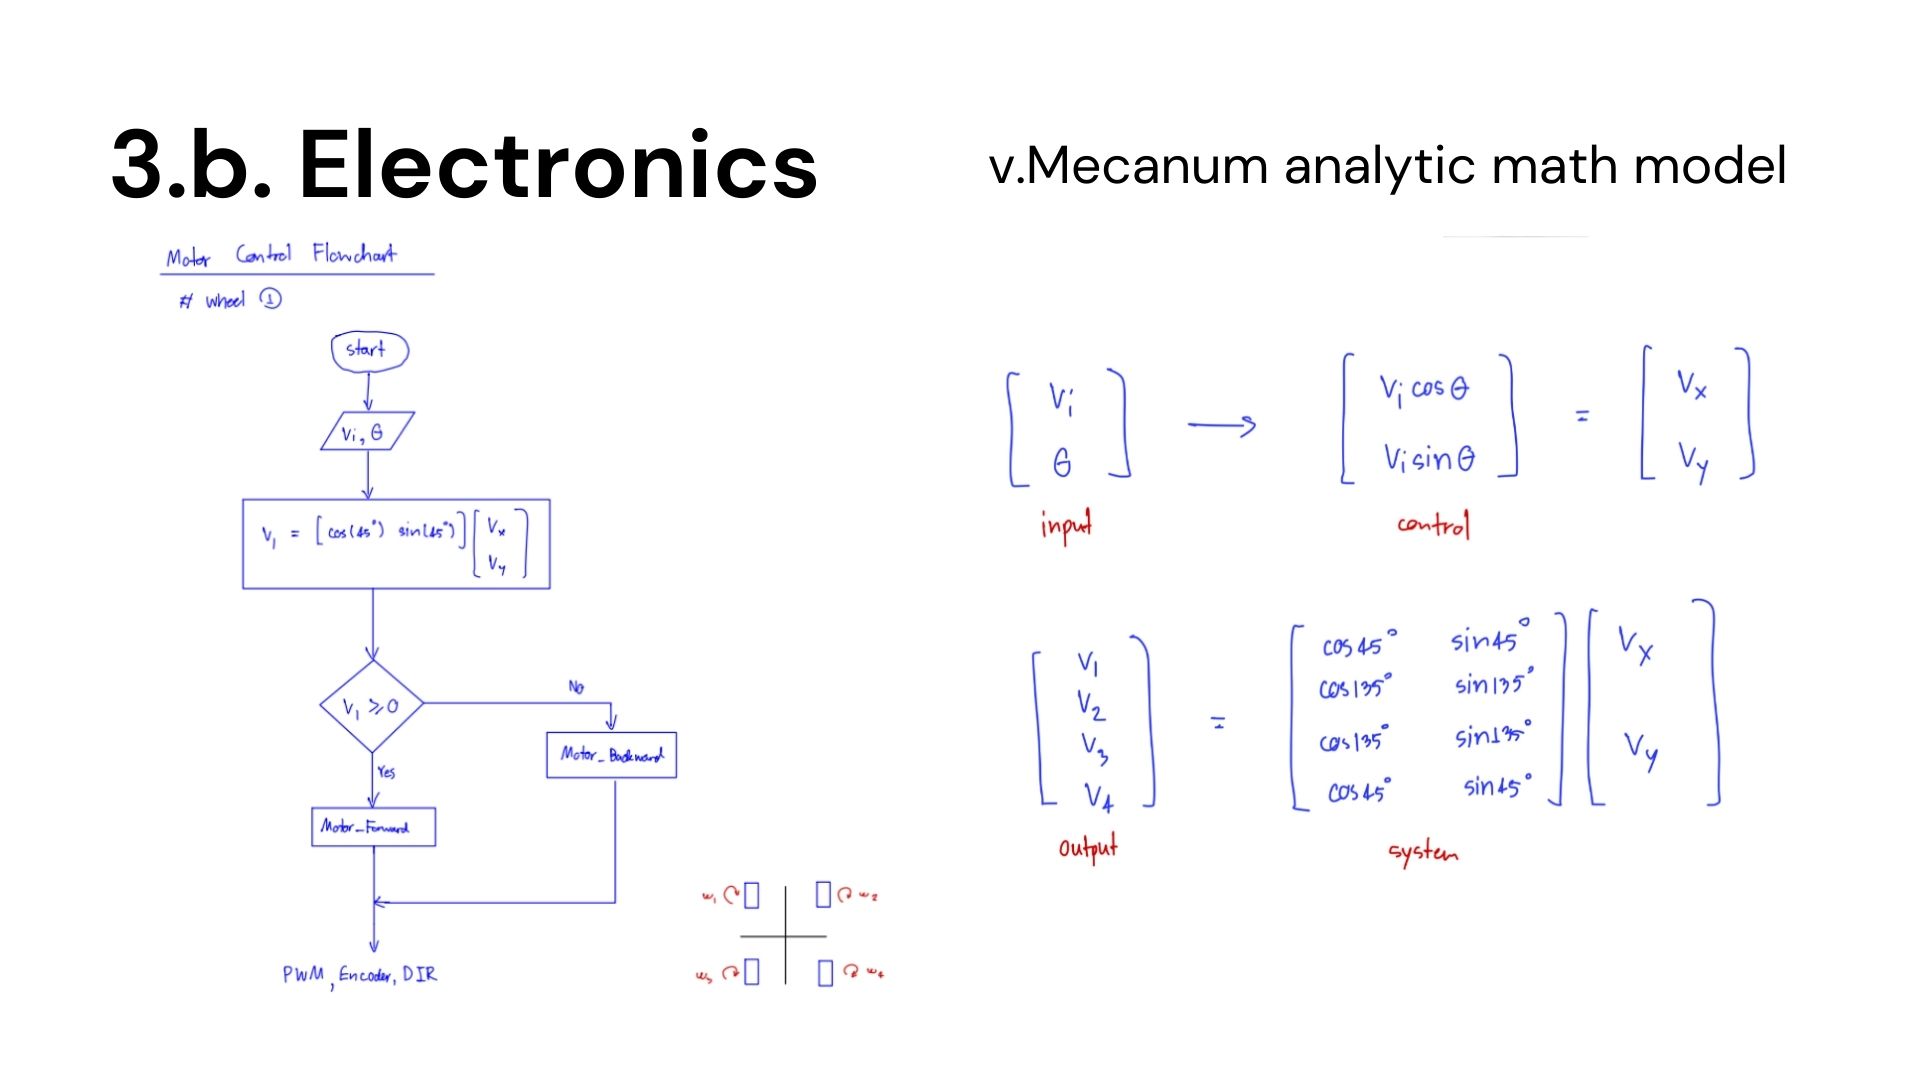 3.b. Electronics
v.Mecanum analytic math model
Motor Control Flowchart
# wheel ①
start
Vi, θ
V₁ = [cos(45°) sin(45°)] [Vx
Vy]
V₁ ⩾ 0
No
Yes
Motor_Backward
Motor_Forward
PWM, Encoder, DIR
ω₁ ω₂
ω₃ ω₄
[Vi
θ]
→
[Vi cos θ
Vi sin θ]
=
[Vx
Vy]
input
control
[V₁
V₂
V₃
V₄]
=
[cos 45° sin 45°
cos 135° sin 135°
cos 135° sin 135°
cos 45° sin 45°]
[Vx
Vy]
output
system